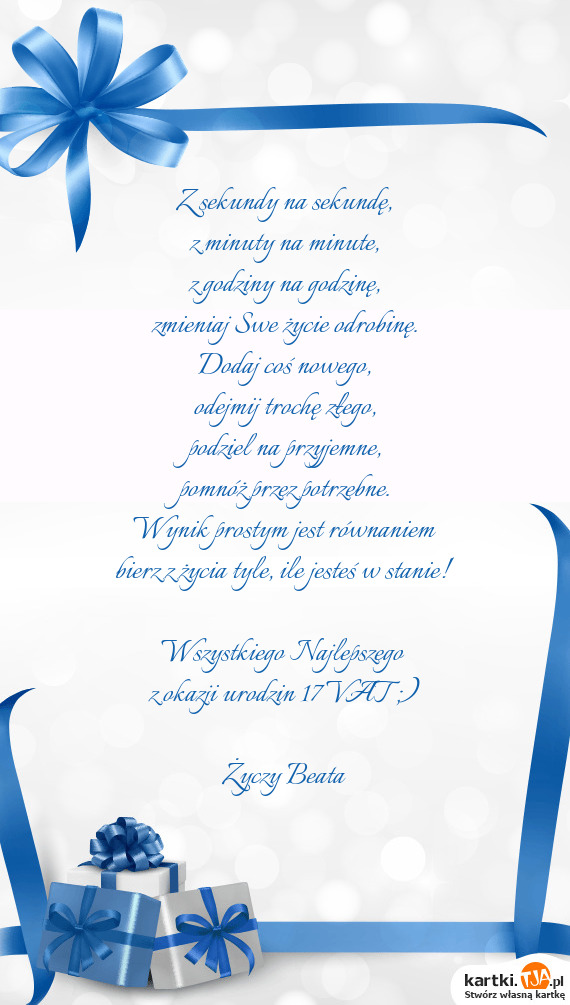 Z sekundy na sekundę,
z minuty na minute,
z godziny na godzinę,
zmieniaj Swe życie odrobinę.
Dodaj coś nowego,
odejmij trochę złego,
podziel na przyjemne,
pomnóż przez potrzebne.
Wynik prostym jest równaniem
bierz z życia tyle, ile jesteś w stanie!
Wszystkiego Najlepszego
z okazji urodzin 17 VAT ;)
Życzy Beata
kartki.TJA.pl
Stwórz własną kartkę